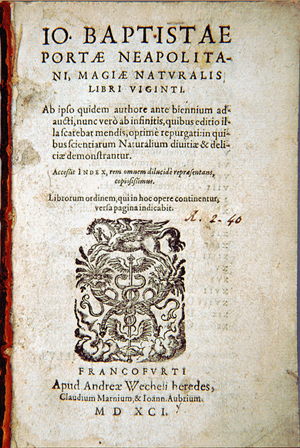 IO. BAPTISTAE
PORTÆ NEAPOLITA-
NI, MAGIÆ NATVRALIS
LIBRI VIGINTI.
Ab ipso quidem authore ante biennium ad-
aucti, nunc verò ab infinitis, quibus editio il-
la scatebat mendis, optimè repurgati: in qui-
bus scientiarum Naturalium diuitiæ & deli-
ciæ demonstrantur.
Accessit INDEX, rem omnem dilucidè repræsentans,
copiosissimus.
Librorum ordinem, qui in hoc opere continentur,
versa pagina indicabit.
A. 2-40
FRANCOFVRTI
Apud Andreæ Wecheli heredes,
Claudium Marnium, & Ioann. Aubrium.
M D XCI.